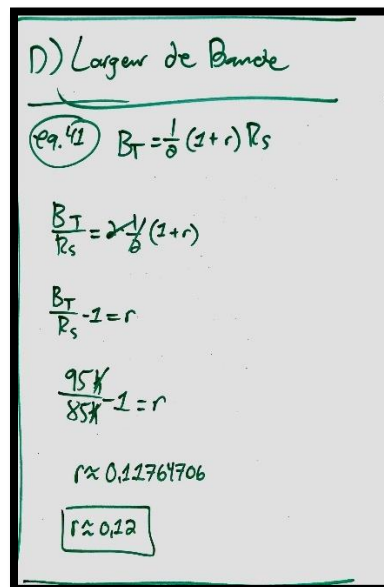 D) Largeur de Bande
eq.41 B_T = 1/2 (1+r) R_s
B_T/R_s = 2·1/2 (1+r)
B_T/R_s - 1 = r
95k/85k - 1 = r
r ≈ 0,11764706
r ≈ 0,12